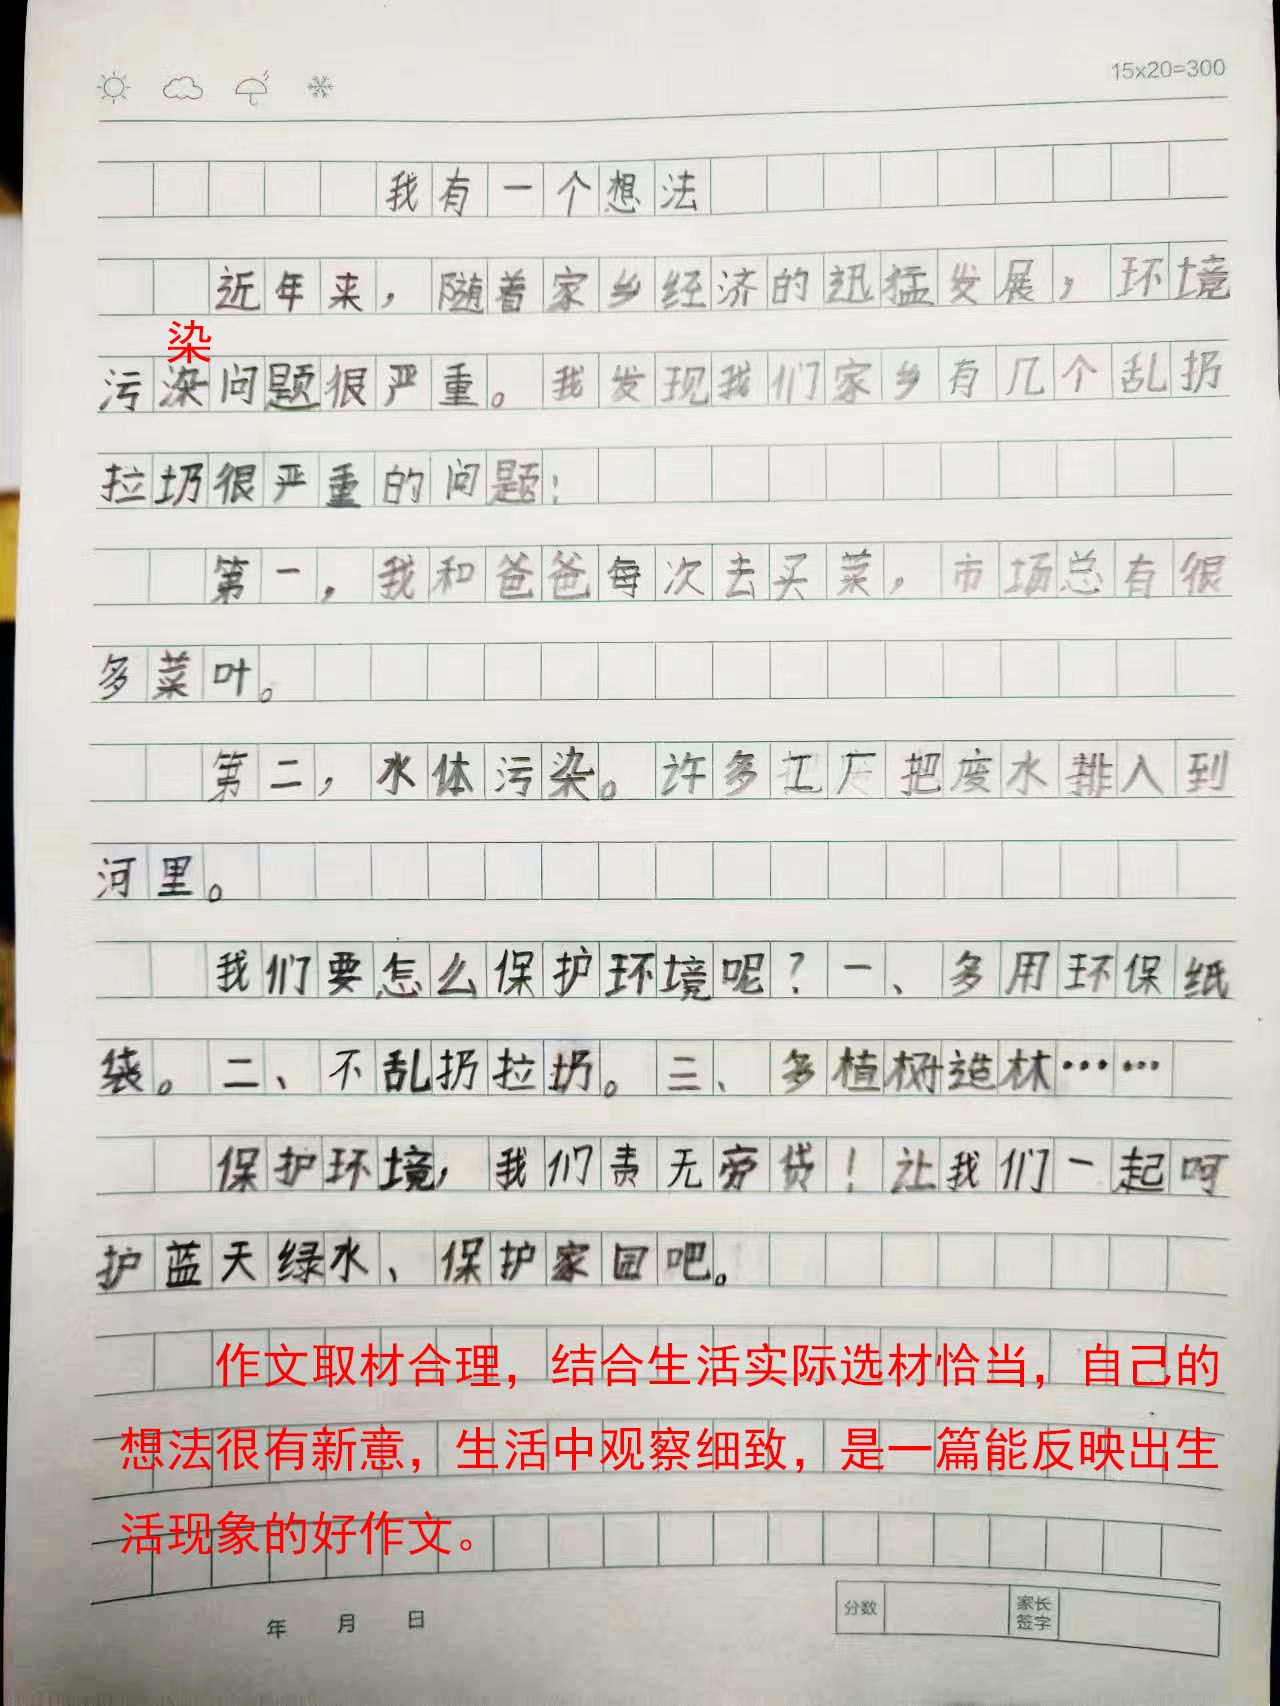 15x20=300
我有一个想法
近年来，随着家乡经济的迅猛发展，环境
染
污染问题很严重。我发现我们家乡有几个乱扔
拉圾很严重的问题：
第一，我和爸爸每次去买菜，市场总有很
多菜叶。
第二，水体污染。许多工厂把废水排入到
河里。
我们要怎么保护环境呢？一、多用环保纸
袋。二、不乱扔拉圾。三、多植树造林……
保护环境，我们责无旁贷！让我们一起呵
护蓝天绿水、保护家园吧。
作文取材合理，结合生活实际选材恰当，自己的
想法很有新意，生活中观察细致，是一篇能反映出生
活现象的好作文。
年 月 日
分数 家长签字